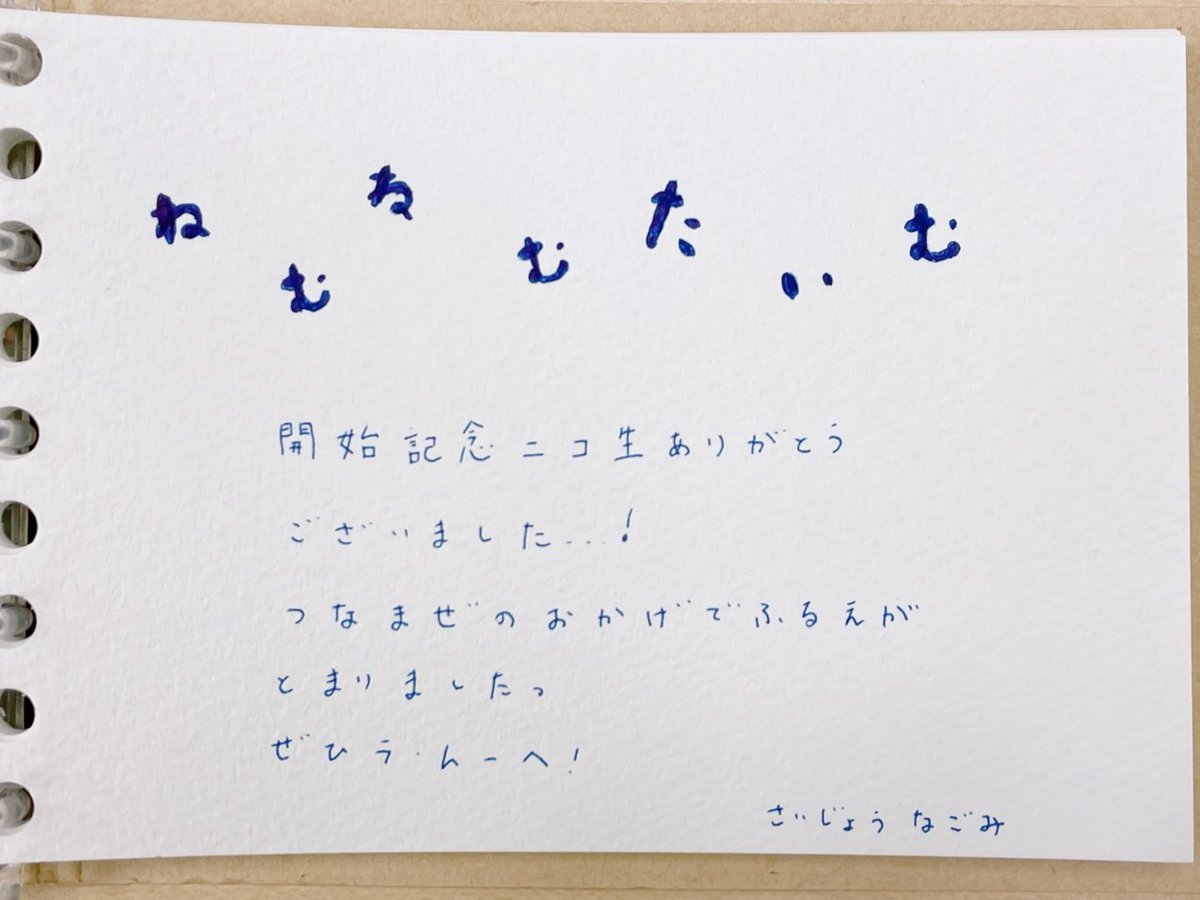 ねむねむたいむ
開始記念ニコ生ありがとう
ございました...!
つなまぜのおかげでふるえが
とまりましたっ
ぜひ
さいじょう なごみ